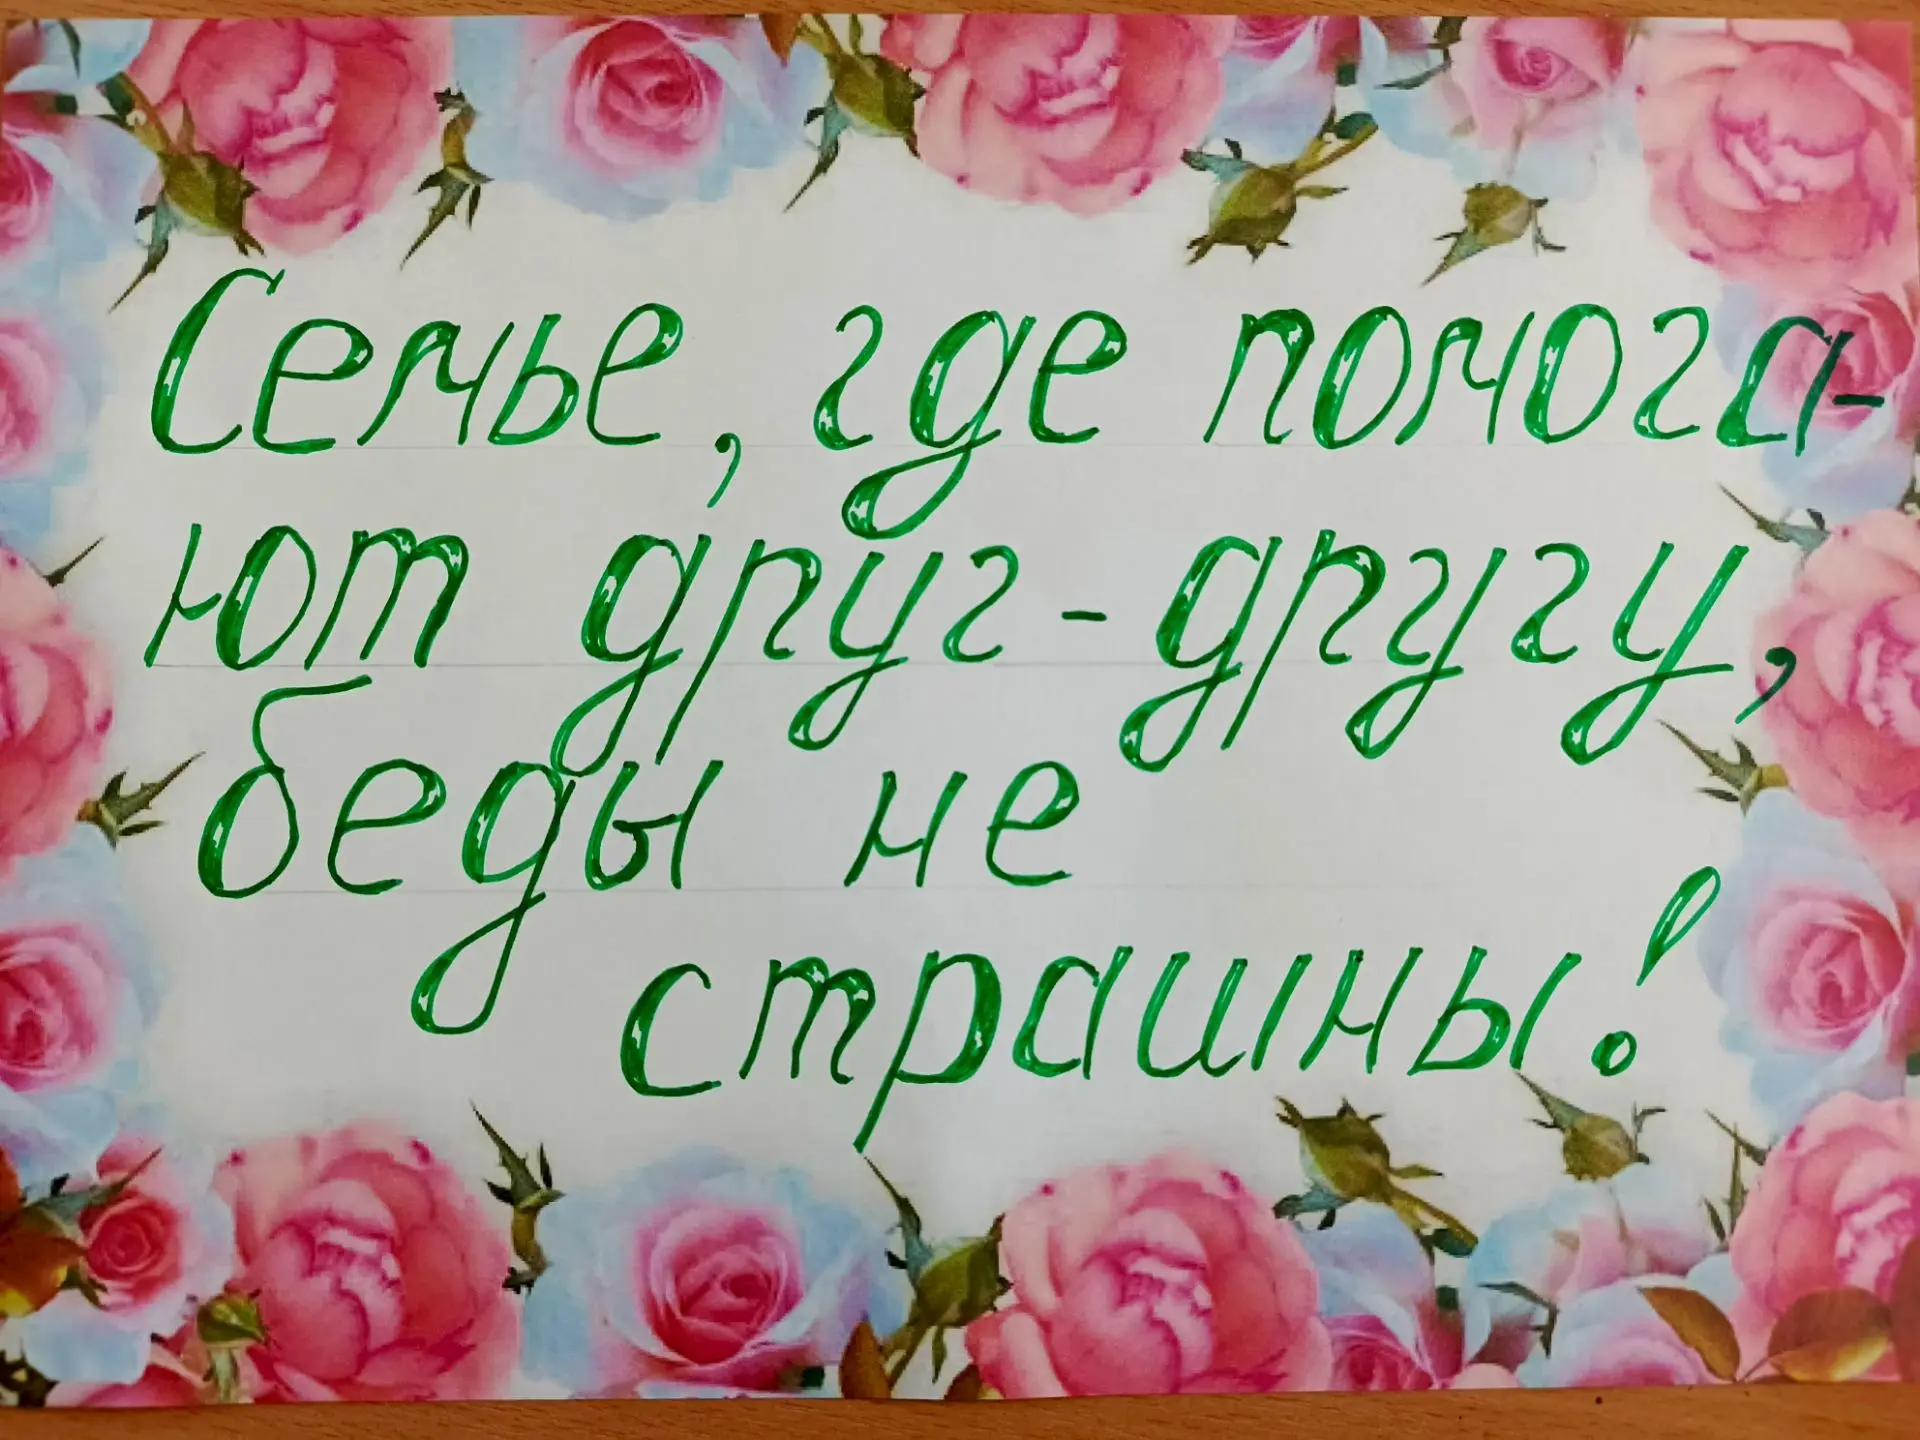 Семье, где помога-
ют друг-другу,
беды не
страшны!